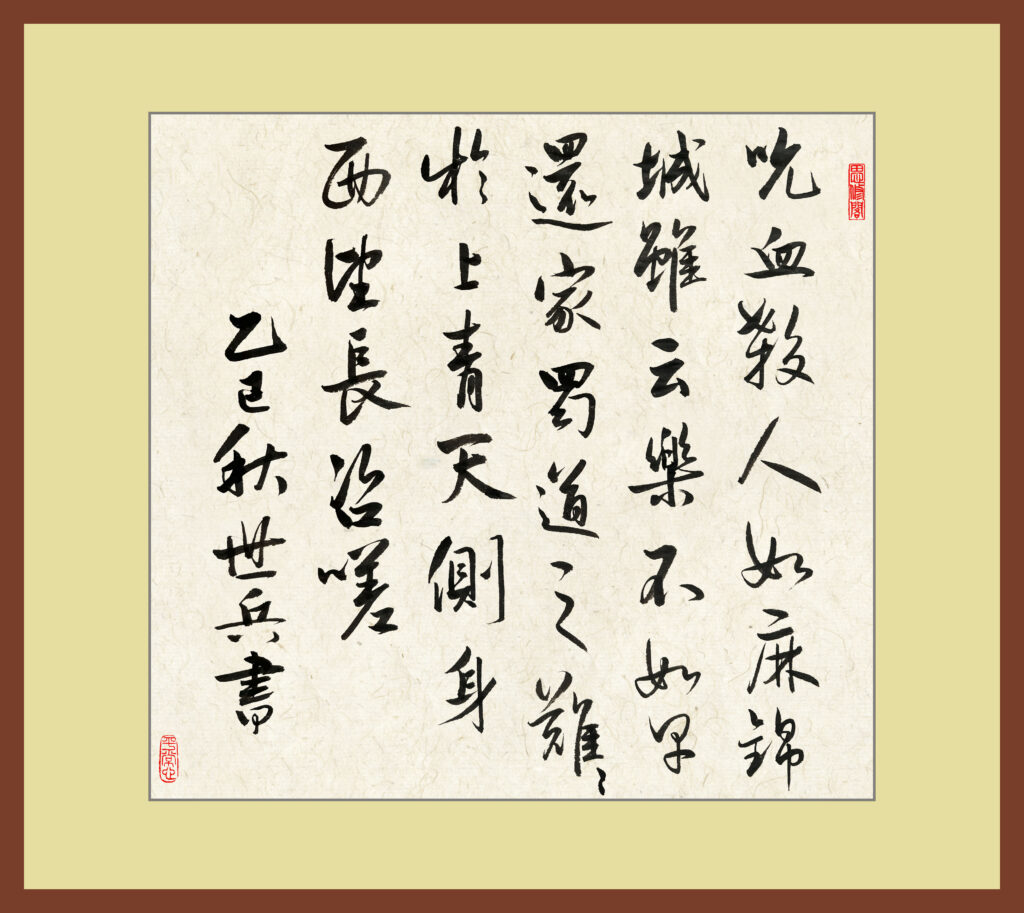 思修閣
吮血殺人如麻錦
城雖云樂不如早
還家蜀道之難〻
於上青天側身
西望長咨嗟
乙巳秋世兵書
平常心